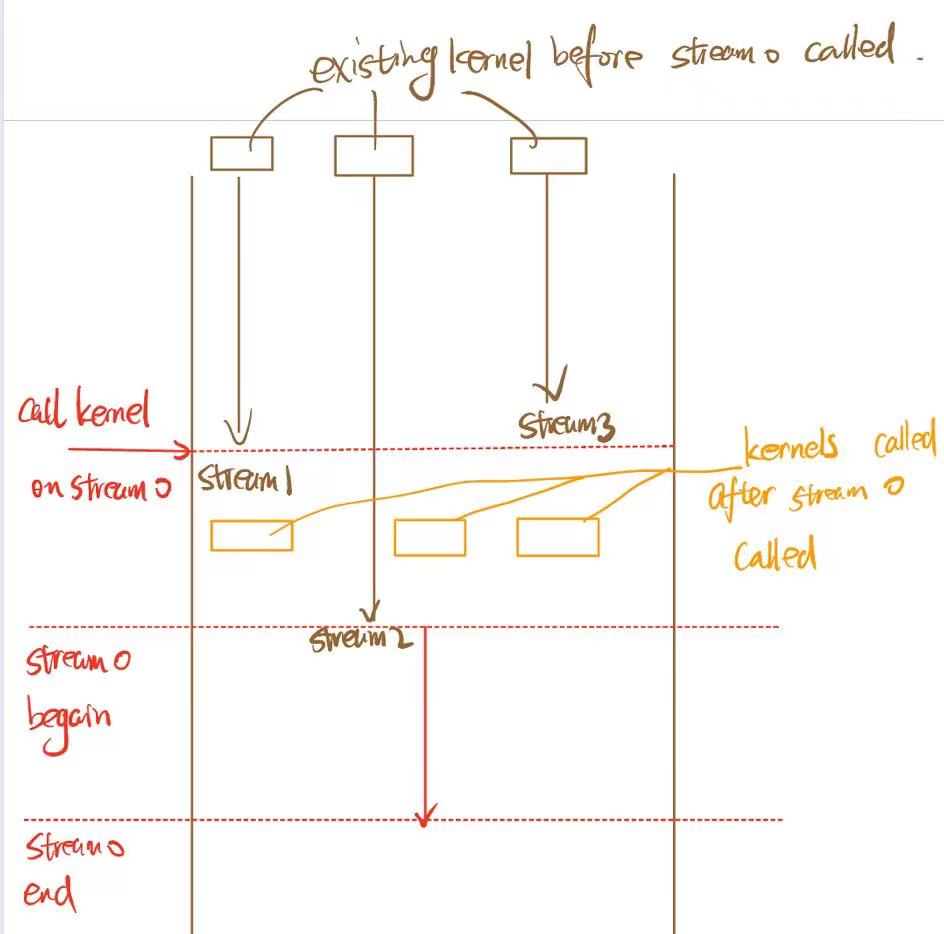 existing kernel before stream 0 called.
call kernel
on stream 0
stream 3
stream 1
kernels called
after stream 0
called
stream 2
stream 0
begain
stream 0
end